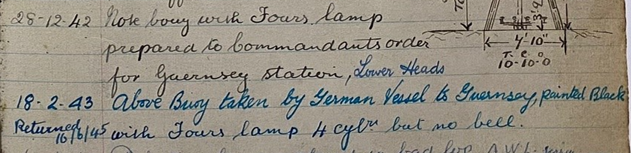 28-12-42 Note bouy with Fours lamp
prepared to Commandants order
for Guernsey station, Lower Heads
4'-10"
T. C. Q
10-10-0
18-2-43 Above Buoy taken by German Vessel to Guernsey, painted Black
Returned 16/6/45 with Fours lamp 4 cylrs but no bell.